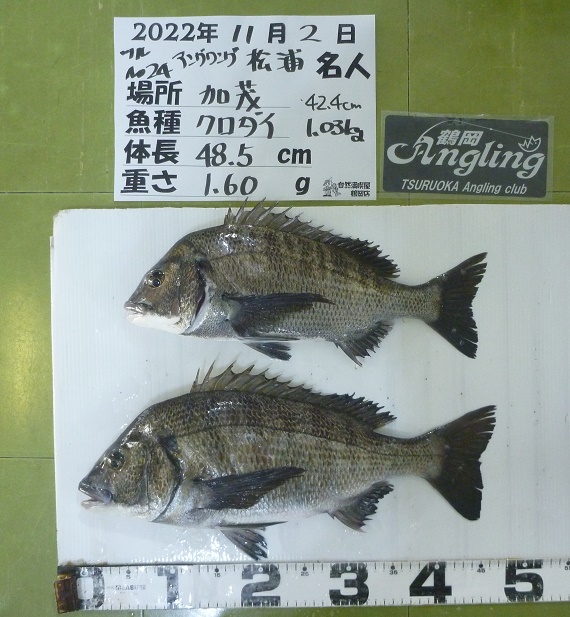 2022年 11月 2日
フル アングリング 松浦 名人
No24
場所 加茂 42.4cm
魚種 クロダイ 1.03kg
体長 48.5 cm
重さ 1.60 g
鶴岡
Angling
TSURUOKA Angling club
0 1 2 3 4 5